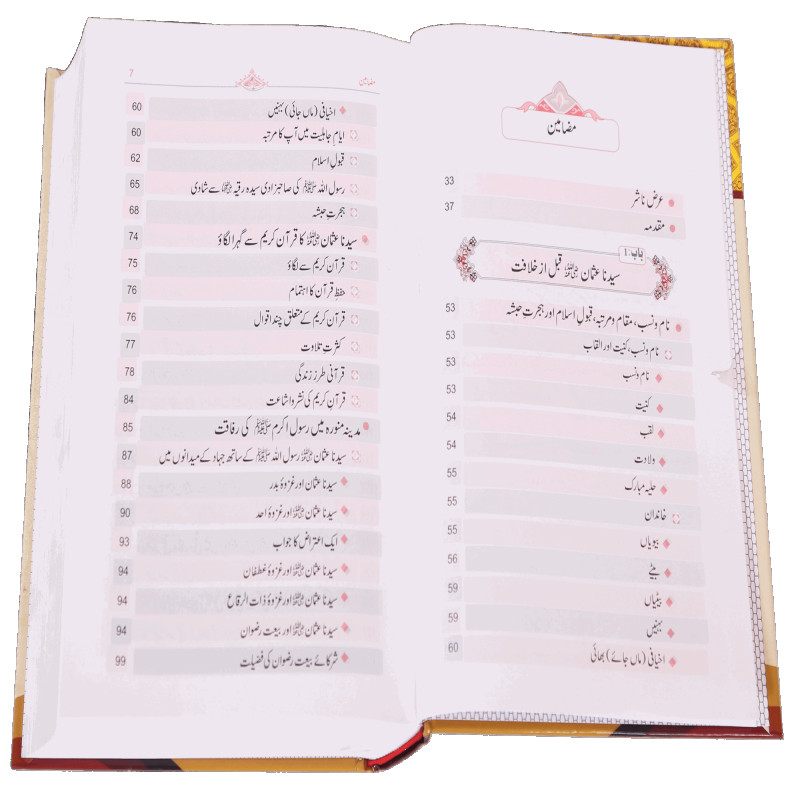 مضامین
عرض ناشر 33
مقدمہ 37
باب: 1
سیدنا عثمان رضی اللہ عنہ قبل از خلافت
نام ونسب، مقام ومرتبہ، قبولِ اسلام اور ہجرتِ حبشہ 53
نام ونسب، کنیت اور القاب 53
نام ونسب 53
کنیت 53
لقب 54
ولادت 54
حلیہ مبارک 55
خاندان 55
بیویاں 55
بیٹے 56
بیٹیاں 59
بہنیں 59
اخیافی (ماں جائے) بھائی 60
مضامین 7
اخیافی (ماں جائی) بہنیں 60
ایامِ جاہلیت میں آپ کا مرتبہ 60
قبولِ اسلام 62
رسول اللہ ﷺ کی صاحبزادی سیدہ رقیہ رضی اللہ عنہا سے شادی 65
ہجرتِ حبشہ 68
سیدنا عثمان رضی اللہ عنہ کا قرآن کریم سے گہرا لگاؤ 74
قرآن کریم سے لگاؤ 75
حفظِ قرآن کا اہتمام 76
قرآن کریم کے متعلق چند اقوال 76
کثرتِ تلاوت 77
قرآنی طرزِ زندگی 78
قرآنِ کریم کی نشر واشاعت 84
مدینہ منورہ میں رسول اکرم ﷺ کی رفاقت 85
سیدنا عثمان رضی اللہ عنہ رسول اللہ ﷺ کے ساتھ جہاد کے میدانوں میں 87
سیدنا عثمان رضی اللہ عنہ اور غزوۂ بدر 88
سیدنا عثمان رضی اللہ عنہ اور غزوۂ احد 90
ایک اعتراض کا جواب 93
سیدنا عثمان رضی اللہ عنہ اور غزوۂ غطفان 94
سیدنا عثمان رضی اللہ عنہ اور غزوۂ ذات الرقاع 94
سیدنا عثمان رضی اللہ عنہ اور بیعت رضوان 94
شرکائے بیعت رضوان کی فضیلت 99